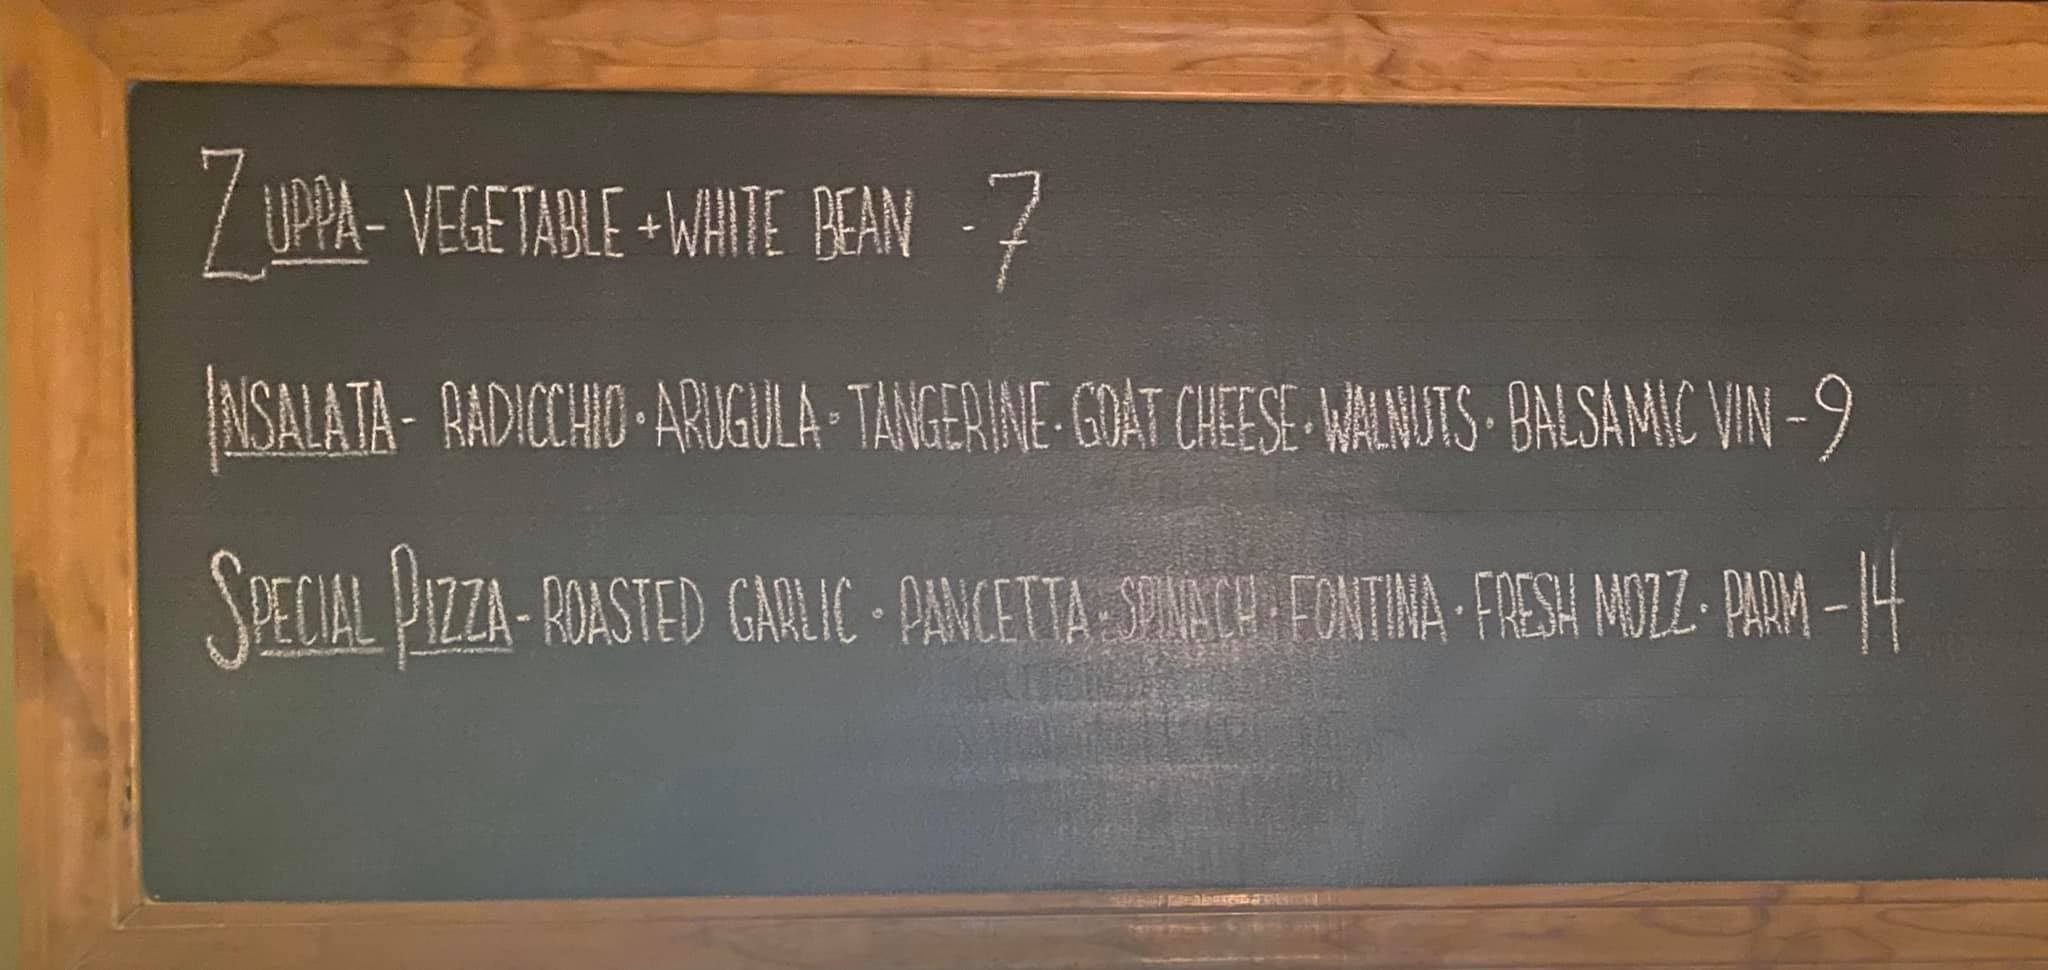 ZUPPA- VEGETABLE + WHITE BEAN - 7
INSALATA- RADICCHIO · ARUGULA · TANGERINE · GOAT CHEESE · WALNUTS · BALSAMIC VIN - 9
SPECIAL PIZZA- ROASTED GARLIC · PANCETTA · SPINACH · FONTINA · FRESH MOZZ · PARM - 14